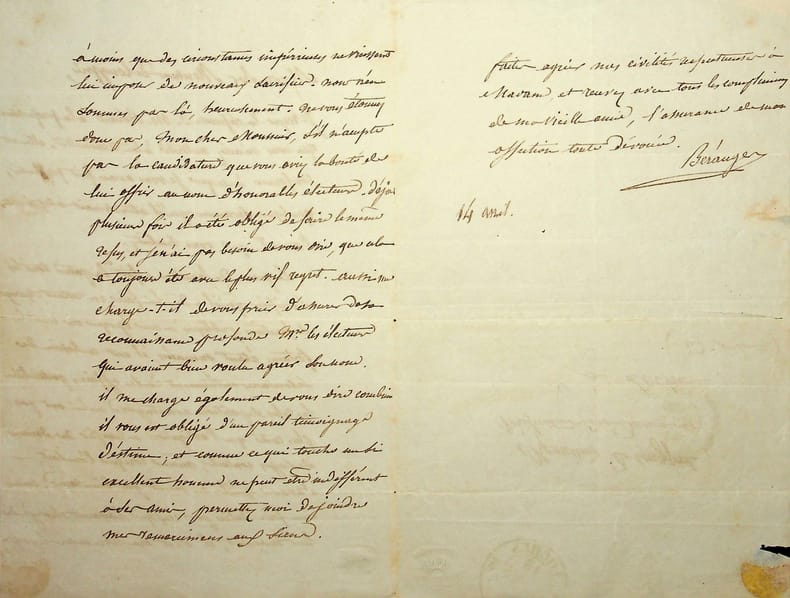 à moins que des circonstances impérieuses ne vinssent
lui imposer de nouveaux sacrifices. nous n'en
sommes pas là, heureusement. Ne vous étonnez
donc pas, Mon cher Monsieur, s'il n'accepte
pas la candidature que vous aviez la bonté de
lui offrir au nom d'honorables électeurs. Déjà
plusieurs fois il a été obligé de faire le même
refus, et je n'ai pas besoin de vous dire, que cela
a toujours été avec le plus vif regret. aussi me
charge-t-il de vous prier d'assurer de sa
reconnaissance profonde Mrs les électeurs
qui avaient bien voulu agréer son nom.
il me charge également de vous dire combien
il vous est obligé d'un pareil témoignage
d'estime; et comme ce qui touche un si
excellent homme ne peut être indifférent
à ses amis, permettez moi de joindre
mes remercimens aux siens.
faites agréer mes civilités respectueuses à
Madame, et recevez avec tous les complimens
de ma vieille amie, l'assurance de mon
affection toute dévouée.
Béranger
14 avril.